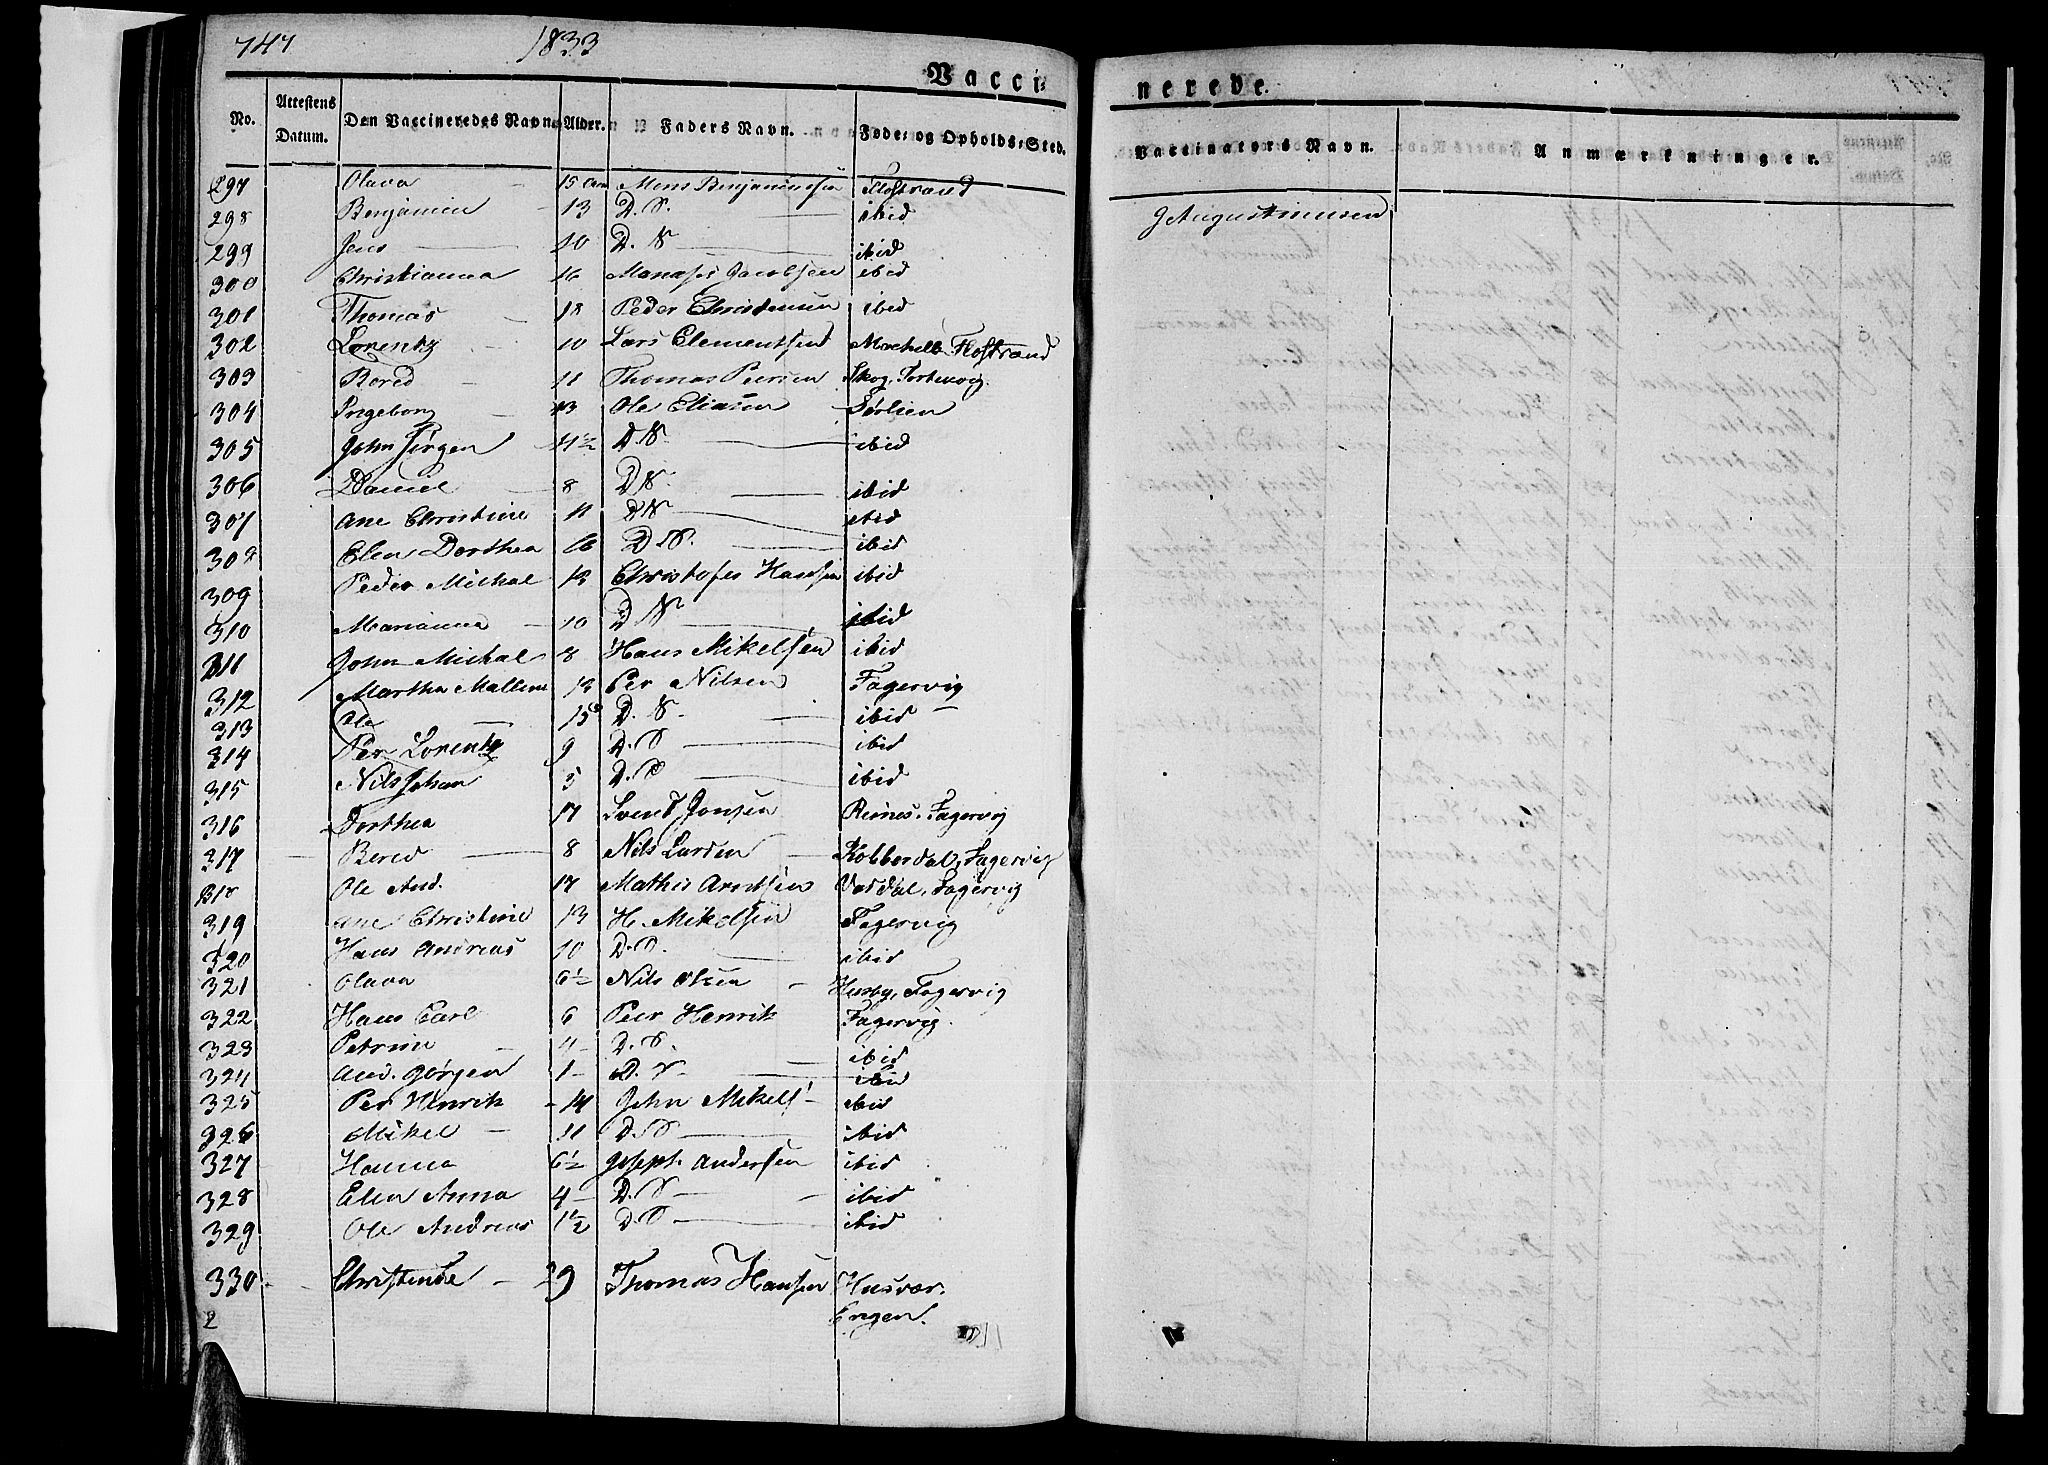 747 1833
Vacci= nerede.
No. Attestens Datum. Den Vaccineredes Navn. Alder. Faders Navn. Føde- og Opholds-Sted. Vaccinators Navn. Anmærkninger.
297 Olava 15 Mons Benjaminsen Flostrand
298 Benjamin - 13 D. S. ibid J Augustinusen
299 Jens 10 D. S ibid
300 Christianna 16 Manases Jacobsen ibid
301 Thomas - 18 Peder Christensen ibid
302 Lorentz 10 Lars Clementsen Flostrand
303 Bered - 11 Thomas Peersen Skog,
304 Ingeborg - 13 Ole Eliasen Sørlien
305 John Jørgen 11½ D. S. ibid
306 Daniel 8 D S. ibid
307 Ane Christine 11 D S ibid
308 Elen Dorthea 16 D S. ibid
309 Peder Michal 13 Christofer Hansen ibid
310 Marianna - 10 D S ibid
311 John Michal 8 Hans Mikelsen ibid
312 Martha Malline 13 Per Nilsen Fagervig
313 Ole 15 D. S. - ibid
314 Per Lorentz 9 D. S ibid
315 Nils Johan 5 D. S ibid
316 Dorthea 17 Svend Jonsen Reines. Fagervig
317 Bered 8 Nils Larsen Kobberdal, Fagervig
318 Ole And. 17 Mathis Arntsen Vasdal, Fagervig
319 Ane Christine 13 H. Mikelsen Fagervig
320 Hans Andreas 10 D. S. ibid
321 Olava 6½ Nils Olsen - Husby, Fagervig
322 Hans Carl 6 Peer Henrik Fagervig.
323 Petrine - 4 - D. S. ibid
324 And. Jørgen 1 - D. S - ibid
325 Per Henrik - 14 John Mikels - ibid
326 Mikel - 11 D. S ibid
327 Hanna 6½ Joseph Andersen ibid
328 Elen Anna 4 - D. S - ibid
329 Ole Andreas 1½ D. S - ibid
330 - 29 Thomas Hansen Husvær.
2 Engen.